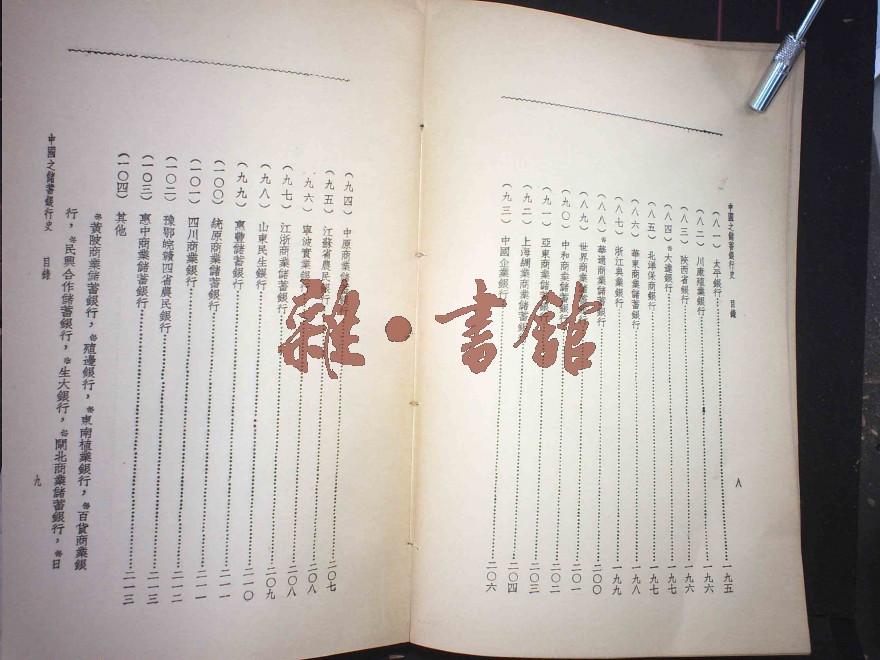 中國之儲蓄銀行史　目錄
八
（八一）太平銀行………一九五
（八二）川康殖業銀行………一九六
（八三）陝西省銀行………一九六
（八四）＊大連銀行………一九七
（八五）北洋保商銀行………一九七
（八六）華東商業儲蓄銀行………一九八
（八七）浙江興業銀行………一九九
（八八）＊華通商業儲蓄銀行………二〇〇
（八九）世界商業儲蓄銀行………二〇一
（九〇）中和商業儲蓄銀行………二〇二
（九一）亞東商業儲蓄銀行………二〇三
（九二）上海綢業商業儲蓄銀行………二〇四
（九三）中國企業銀行………二〇六
（九四）中原商業儲蓄銀行………二〇七
（九五）江蘇省農民銀行………二〇八
（九六）寧波實業銀行………二〇八
（九七）江浙商業儲蓄銀行………二〇八
（九八）山東民生銀行………二〇九
（九九）惠豐儲蓄銀行………二一〇
（一〇〇）統原商業儲蓄銀行………二一一
（一〇一）四川商業銀行………二一一
（一〇二）豫鄂皖贛四省農民銀行………二一二
（一〇三）惠中商業儲蓄銀行………二一三
（一〇四）其他………二一三
＊黃陂商業儲蓄銀行，＊殖邊銀行，＊東南植業銀行，＊百貨商業銀
行，＊民興合作儲蓄銀行，＊生大銀行，＊閘北商業儲蓄銀行，＊日
中國之儲蓄銀行史　目錄
九
雜・書館